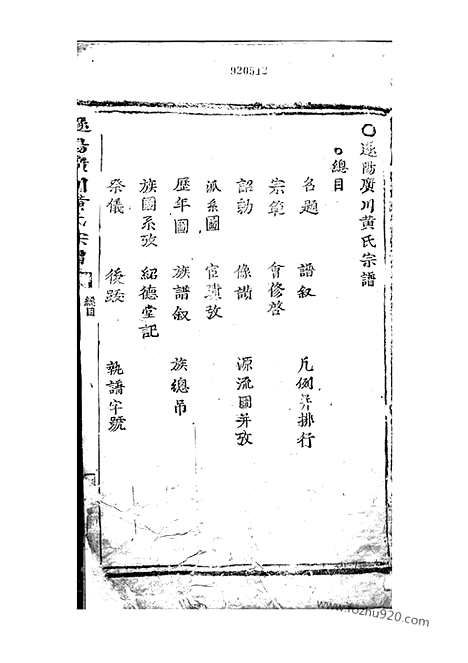 920512
〇遂陽廣川黄氏宗譜
○總目
名題 譜叙 凡例并排行
宗範 會修啓
詔勅 像讃 源流圖并攷
派系圖 宦蹟攷
歷年圖 族譜叙 族總吊
族圖系攷 紹德堂記
祭儀 後跋 執譜字號
遂陽廣川黄氏宗譜
總目
www.zhuzhu920.com